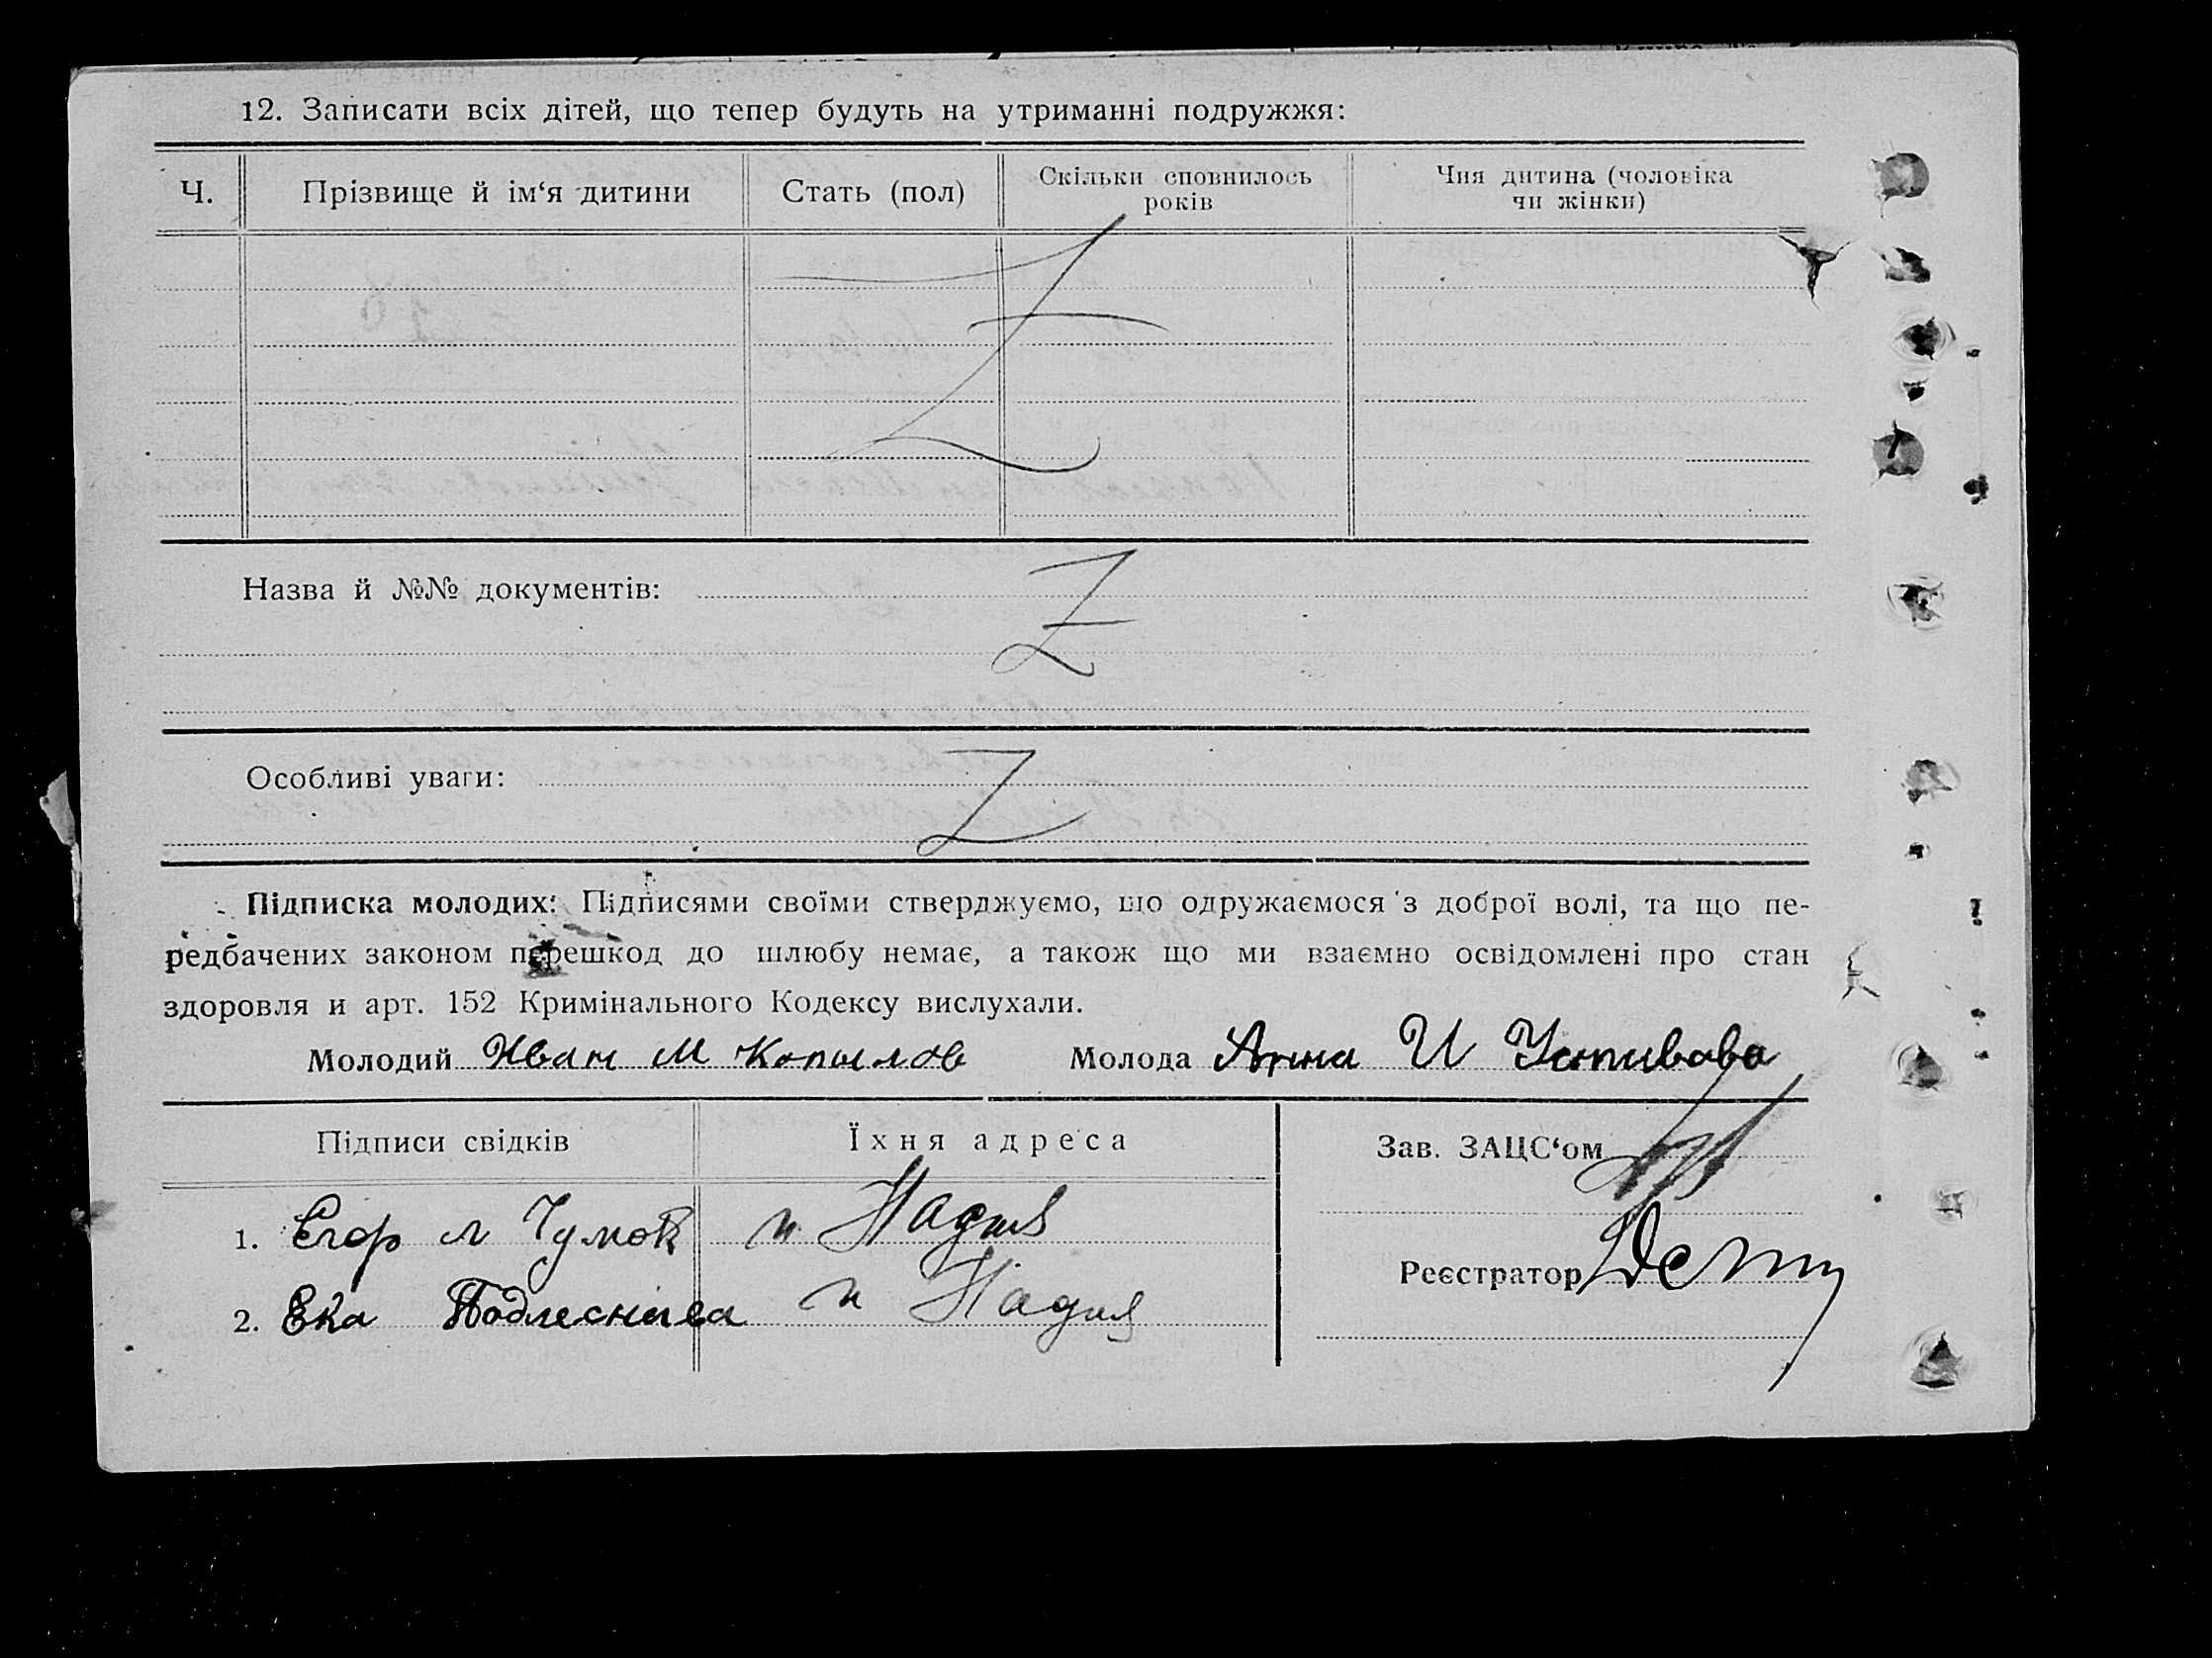 12. Записати всіх дітей, що тепер будуть на утриманні подружжя:
Ч. Прізвище й ім‘я дитини Стать (пол) Скільки сповнилось років Чия дитина (чоловіка чи жінки)
Z
Назва й №№ документів: Z
Особливі уваги: Z
Підписка молодих: Підписями своїми стверджуємо, що одружаємося з доброї волі, та що пе-
редбачених законом перешкод до шлюбу немає, а також що ми взаємно освідомлені про стан
здоровля и арт. 152 Кримінального Кодексу вислухали.
Молодий Иван М Копылов Молода Анна И
Підписи свідків Їхня адреса Зав. ЗАЦС‘ом
1. Егор
Реєстратор
2. Ека